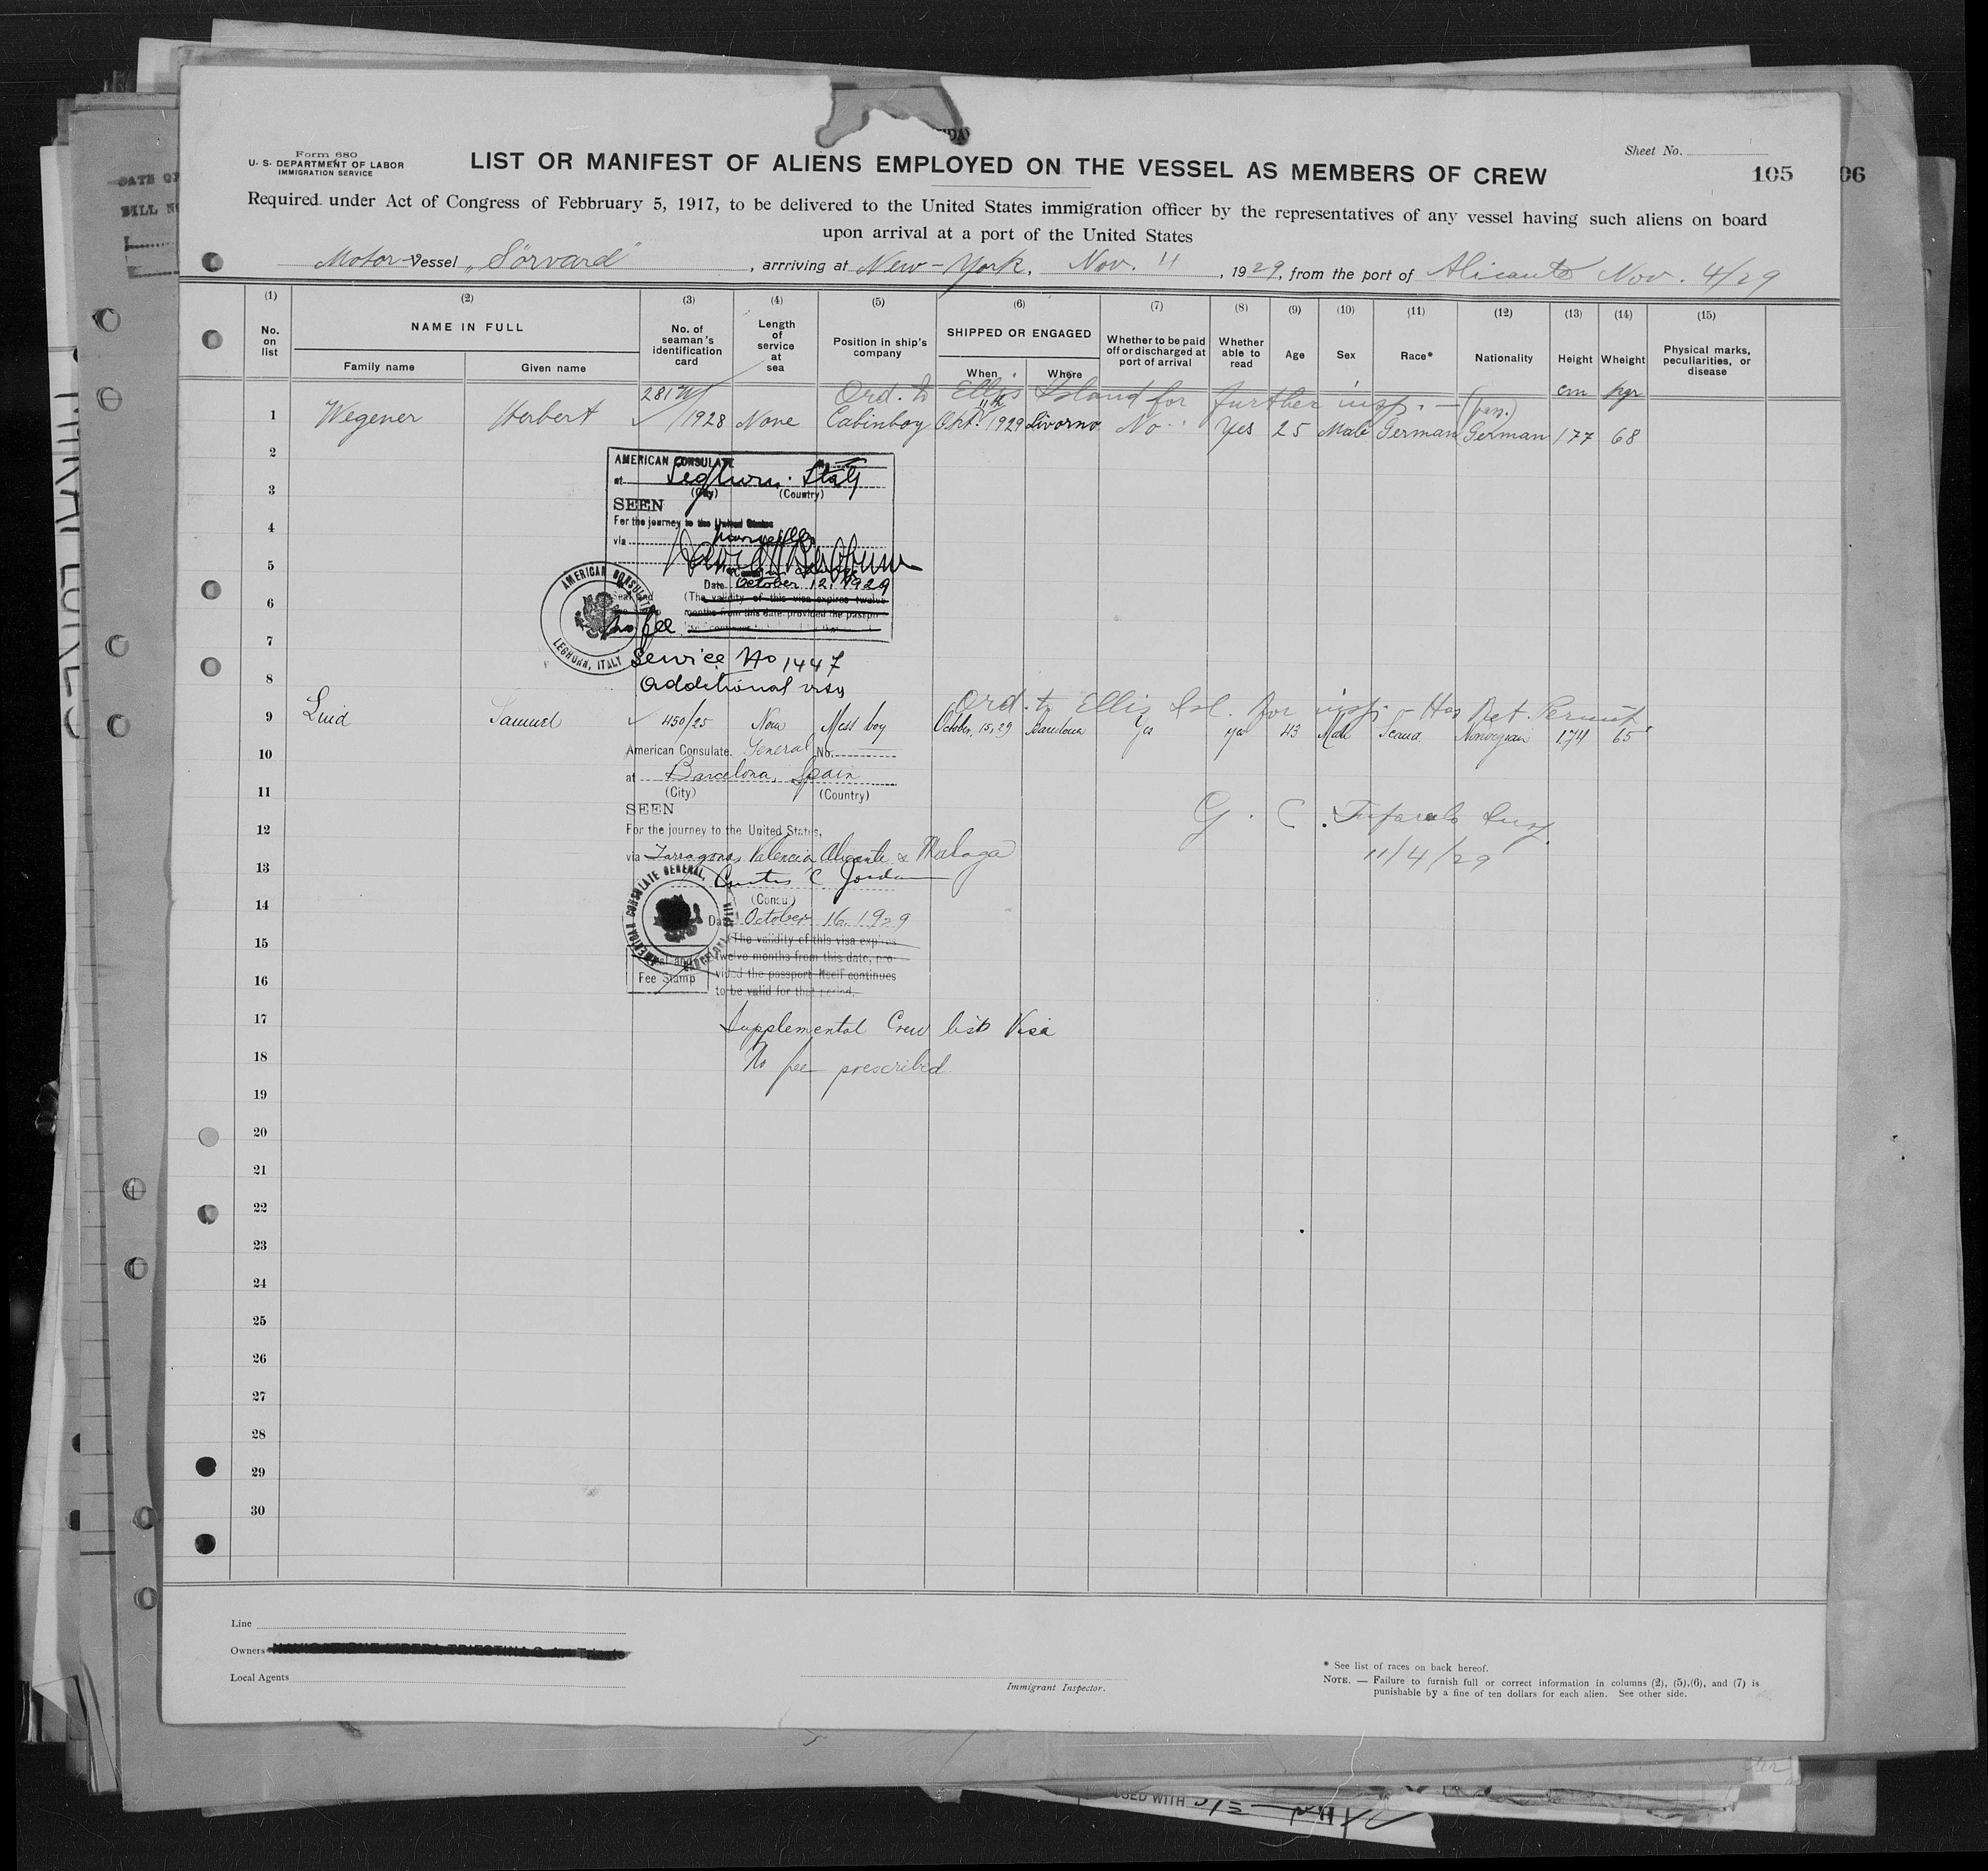 Form 680
U. S. DEPARTMENT OF LABOR
IMMIGRATION SERVICE
LIST OR MANIFEST OF ALIENS EMPLOYED ON THE VESSEL AS MEMBERS OF CREW
Sheet No.
105
06
Required under Act of Congress of Febbruary 5, 1917, to be delivered to the United States immigration officer by the representatives of any vessel having such aliens on board
upon arrival at a port of the United States
Motor-Vessel „Sörvard" , arrriving at New-York, Nov. 11 , 1929, from the port of Alicante Nov. 4/29
(1) (2) (3) (4) (5) (6) (7) (8) (9) (10) (11) (12) (13) (14) (15)
No. on list
NAME IN FULL
Family name Given name
No. of seaman's identification card
Length of service at sea
Position in ship's company
SHIPPED OR ENGAGED
When Where
Whether to be paid off or discharged at port of arrival
Whether able to read
Age
Sex
Race*
Nationality
Height
Wheight
Physical marks, peculiarities, or disease
Ord. to Ellis Island for further insp. cm kgr
1 Wegener Herbert 281 /1928 None Cabinboy Okt. 11th 1929 Livorno No Yes 25 Male German German 177 68
2
AMERICAN CONSULATE
at Leghorn. Italy
3
(City) (Country)
SEEN
4
For the journey to the United States
via
5
Date October 12, 1929
(The validity of this visa expires twelve
6
months from this date provided the passport
no fee
AMERICAN CONSULATE LEGHORN, ITALY
7
Service No 1447
8
Additional visa
Ord. to Ellis Isl. for insp. - Has Ret. Permit
9 Samuel 450/25 None Mess boy October, 15, 29 Barcelona Yes yes 43 Male Scand. Norwegian 1.74 65
10
American Consulate General No.
at Barcelona, Spain
11
(City) (Country)
SEEN
12
For the journey to the United States,
via Tarragona, Valencia Alicante & Malaga
11/4/29
13
Curtis C Jordan
(Consul)
14
Date October 16, 1929
AMERICAN CONSULATE GENERAL, BARCELONA, SPAIN
15
(The validity of this visa expires
twelve months from this date, pro-
16
Fee Stamp
vided the passport itself continues
to be valid for that period.
17
Supplemental Crew list Visa
18
No fee prescribed
19
20
21
22
23
24
25
26
27
28
29
30
Line
Owners
Local Agents
Immigrant Inspector.
* See list of races on back hereof.
NOTE. — Failure to furnish full or correct information in columns (2), (5),(6), and (7) is
punishable by a fine of ten dollars for each alien. See other side.